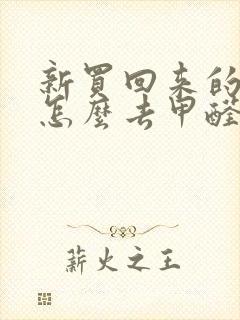 新買回來的
怎麼去甲醛
薪火之王